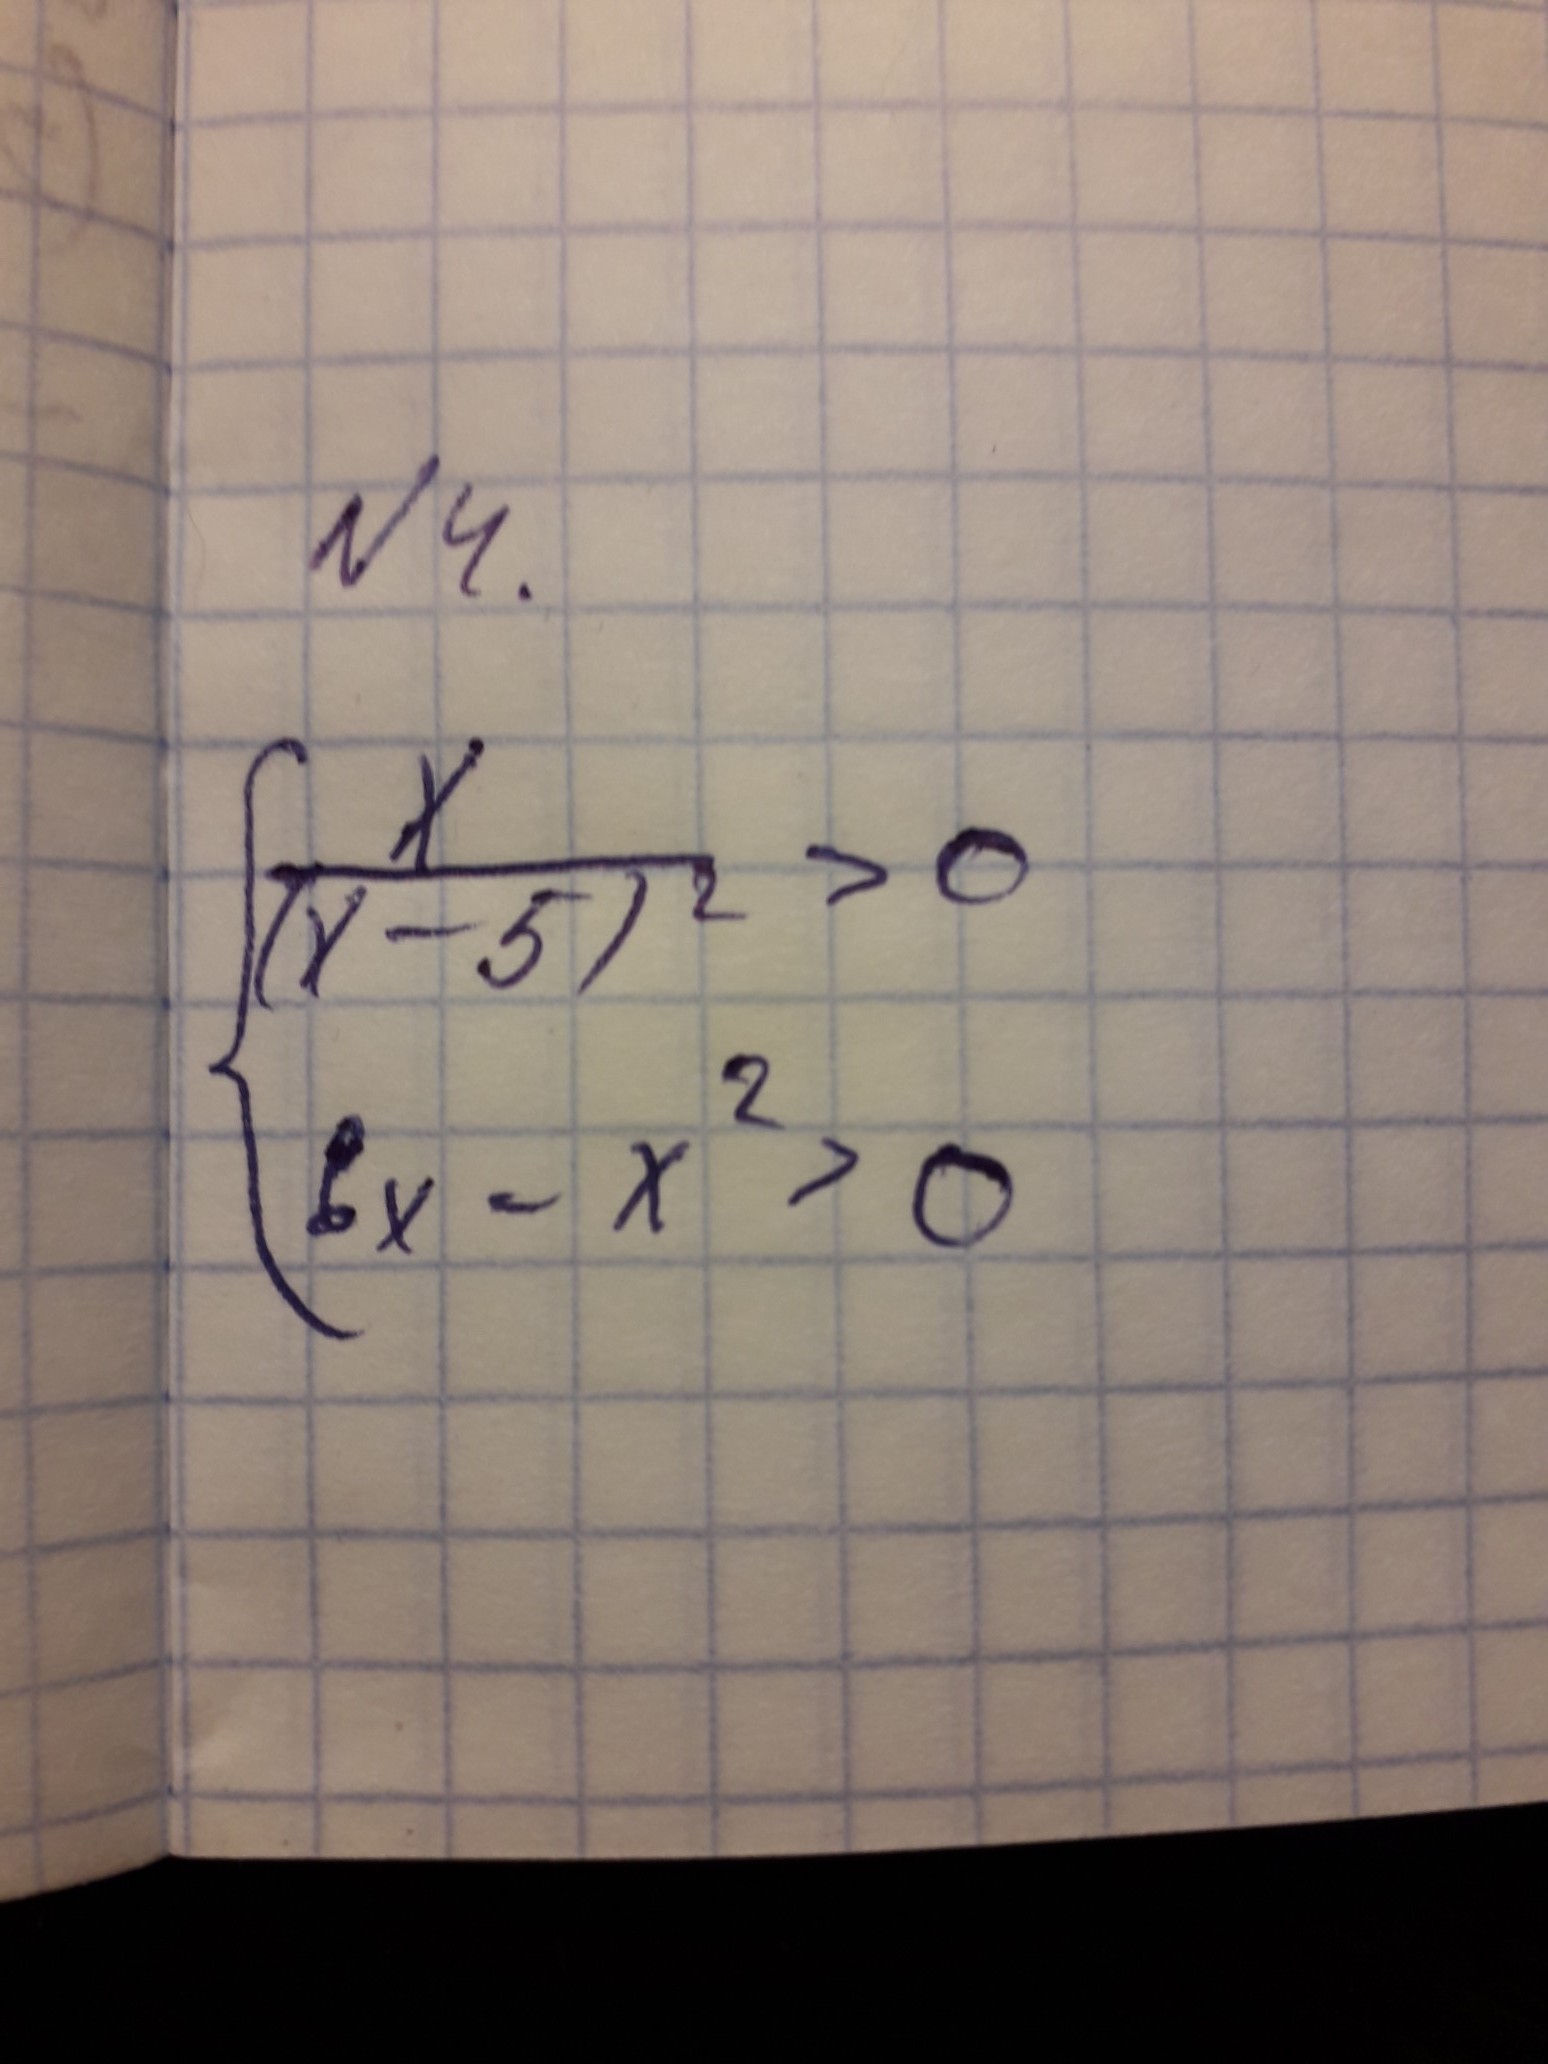 N4.
{ x / (x - 5)² > 0
6x - x² > 0